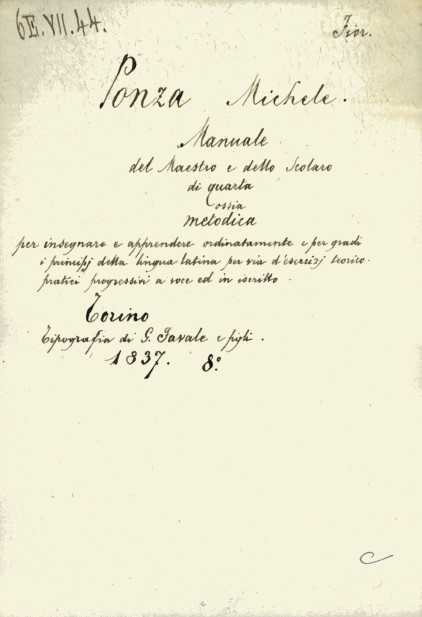 6E.VII.44.
Fior.
Ponza Michele.
Manuale
del Maestro e dello Scolaro
di quarta
ossia
metodica
per insegnare e apprendere ordinatamente e per gradi
i principj della lingua latina per via d'esercizj teorico-
pratici progressivi a voce ed in iscritto.
Torino
Tipografia di G. Favale e figli.
1837. 8.º
C